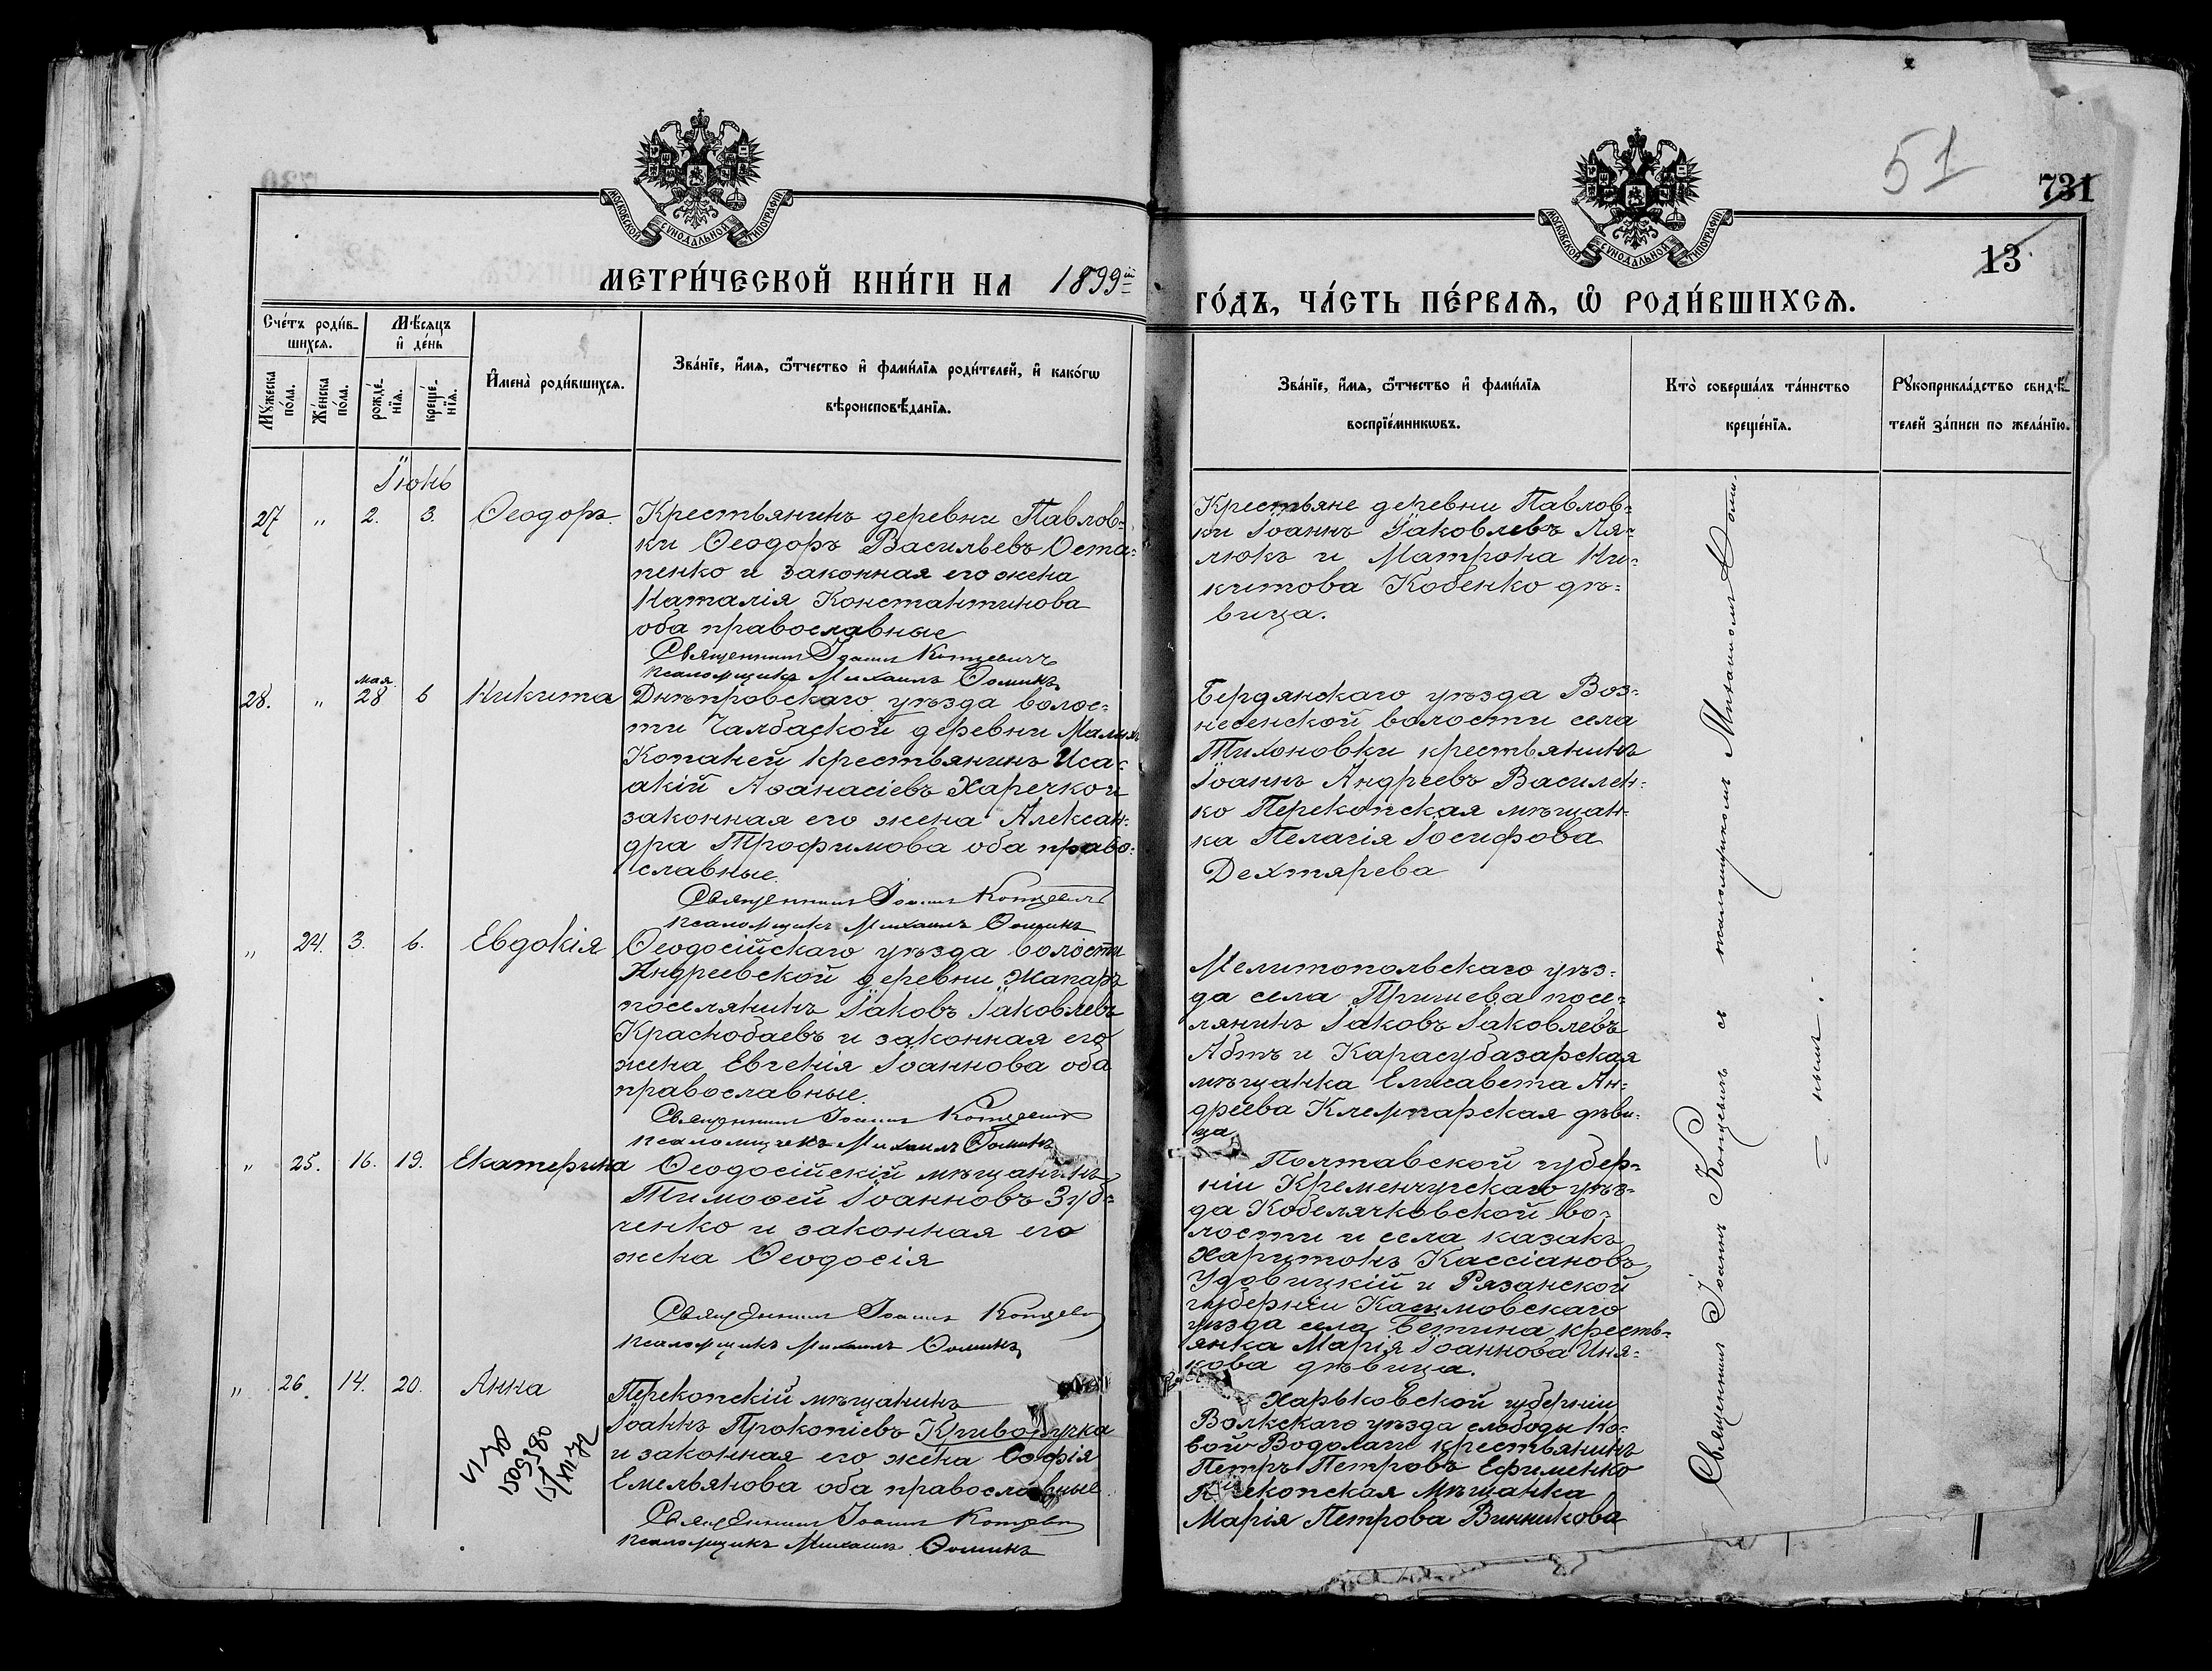 730
51
731
13
МОСКОВСКОЙ СѴНОДАЛЬНОЙ ТИПОГРАФІИ
МОСКОВСКОЙ СѴНОДАЛЬНОЙ ТИПОГРАФІИ
МЕТРИ́ЧЕСКОЙ КНИ́ГИ НА 1899й
ГО́ДЪ, ЧА́СТЬ ПЕ́РВАѦ, Ѡ҆ РОДИ́ВШИХСѦ.
Сче́тъ роди́в-
шихсѧ.
Мѣ́сѧцъ
и҆ де́нь
Мꙋ́жеска
по́ла.
Же́нска
по́ла.
рожде́-
нїѧ.
креще́-
нїѧ.
И҆мена̀ роди́вшихсѧ.
Зва́нїе, и҆́мѧ, ѻ҆́тчество и҆ фами́лїѧ роди́телей, и҆ како́гѡ
вѣроисповѣ́данїѧ.
Зва́нїе, и҆́мѧ, ѻ҆́тчество и҆ фами́лїѧ
воспрїе́мникѡвъ.
Кто̀ соверша́лъ та́инство
креще́нїѧ.
Рꙋкоприкла́дство свидѣ́-
телей за́писи по жела́нїю.
Іюнь
27 „ 2. 3. Ѳеодоръ.
Крестьянинъ деревни Павлов-
ки Ѳеодоръ Васильевъ Оста-
пенко и законная его жена
Наталія Константинова
оба православные
Священникъ Іоаннъ Концевичъ
псаломщикъ Михаилъ Ѳоминъ
Крестьяне деревни Павлов-
ки Іоаннъ Іаковлевъ Ля-
люкъ и Матрона Ни-
китова Кобенко дѣ-
вица.
мая
28. „ 28 6 Никита
Днѣпровскаго уѣзда волос-
ти Чалбаской деревни Малыхъ
Копаней крестьянинъ Иса-
акій Аѳанасіевъ Харечко и
законная его жена Алексан-
дра Трофимова оба право-
славные.
Священникъ Іоаннъ Концевичъ
псаломщикъ Михаилъ Ѳоминъ
Бердянскаго уѣзда Воз-
несенской волости села
Тихоновки крестьянинъ
Іоаннъ Андреевъ Василен-
ко Перекопская мѣщан-
ка Пелагія Іосифова
Дехтярева
„ 24. 3. 6. Евдокія
Ѳеодосійскаго уѣзда волости
Андреевской деревни Жапаръ
поселянинъ Іаковъ Іаковлевъ
Краснобаевъ и законная его
жена Евгенія Іоаннова оба
православные.
Священникъ Іоаннъ Концевичъ
псаломщикъ Михаилъ Ѳоминъ
Мелитопольскаго уѣз-
да села Пришева посе-
лянинъ Іаковъ Іаковлевъ
Абтъ и Карасубазарская
мѣщанка Елисавета Ан-
дреева Клемпарская дѣви-
ца
„ 25. 16. 19. Екатерина
Ѳеодосійскій мѣщанинъ
Тимоѳей Іоанновъ Зуб-
ченко и законная его
жена Ѳеодосія
Священникъ Іоаннъ Концевичъ
псаломщикъ Михаилъ Ѳоминъ
Полтавской губер-
ніи Кременчугскаго уѣз-
да Кобелячковской во-
лости и села казакъ
Харитонъ Кассіановъ
Удовицкій и Рязанской
губерніи Касимовскаго
уѣзда села Бетина кресть-
янка Марія Іоаннова Иня-
кова дѣвица.
„ 26. 14. 20. Анна
Перекопскій мѣщанинъ
Іоаннъ Прокопіевъ Криворучка
и законная его жена Софія
Емельянова оба православные.
Священникъ Іоаннъ Концевичъ
псаломщикъ Михаилъ Ѳоминъ
Харьковской губерніи
Волкскаго уѣзда слободы Но-
вой Водолаги крестьянинъ
Петръ Петровъ Ефименко
мѣщанка
Марія Петрова Винникова
Священникъ Іоаннъ Концевичъ съ псаломщикомъ Михаиломъ Ѳоми-
нымъ.